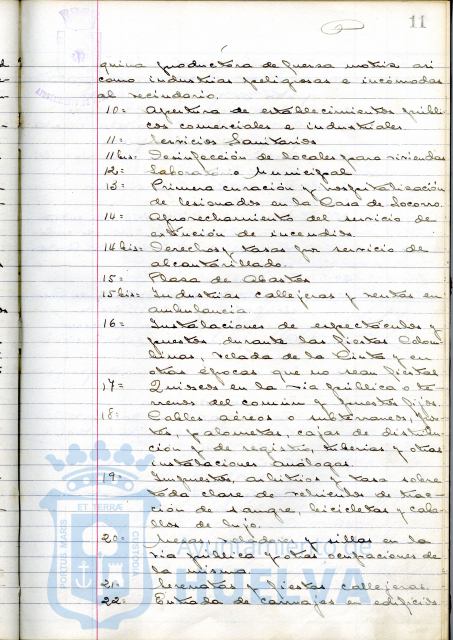 11
quina productora de fuerza motriz asi
como industrias peligrosas e incómodas
al vecindario.
10= Apertura de establecimientos públi-
cos comerciales e industriales.
11= Servicios Sanitarios
11 bis= Desinfección de locales para viviendas
12= Laborat o Municipal
13= Primera curación y hospitalización
de lesionados en la Casa de Socorro.
14= Aprovechamiento del servicio de
extinción de incendios.
14 bis= Derechos y tasas por servicio de
alcantarillado.
15= Plaza de Abastos
15 bis= Industrias callejeras y ventas en
ambulancia
16= Instalaciones de espectáculos y
puestos durante las fiestas Colom-
binas, velada de la Cinta y en
otras épocas que no sean fiestas
17= Quioscos en la via pública o te-
rrenos del comun y puestos fijos
18= Cables aéreos o subterraneos, pos-
tes, palometas, cajas de distribu-
ción y de registro, tuberias y otras
instalaciones análogas.
19= Impuestos, arbitrios y tasa sobre
toda clase de vehiculos de trac-
ción de sangre, bicicletas y caba-
llos de lujo.
20= Mesas, veladores y sillas en la
via pública y otras ocupaciones de
la misma.
21= Serenatas y fiestas callejeras.
22= Entrada de carruajes en edificios
Ayuntamiento de
HUELVA
ET TERRÆ
PORTUS MARIS
CUSTODIA